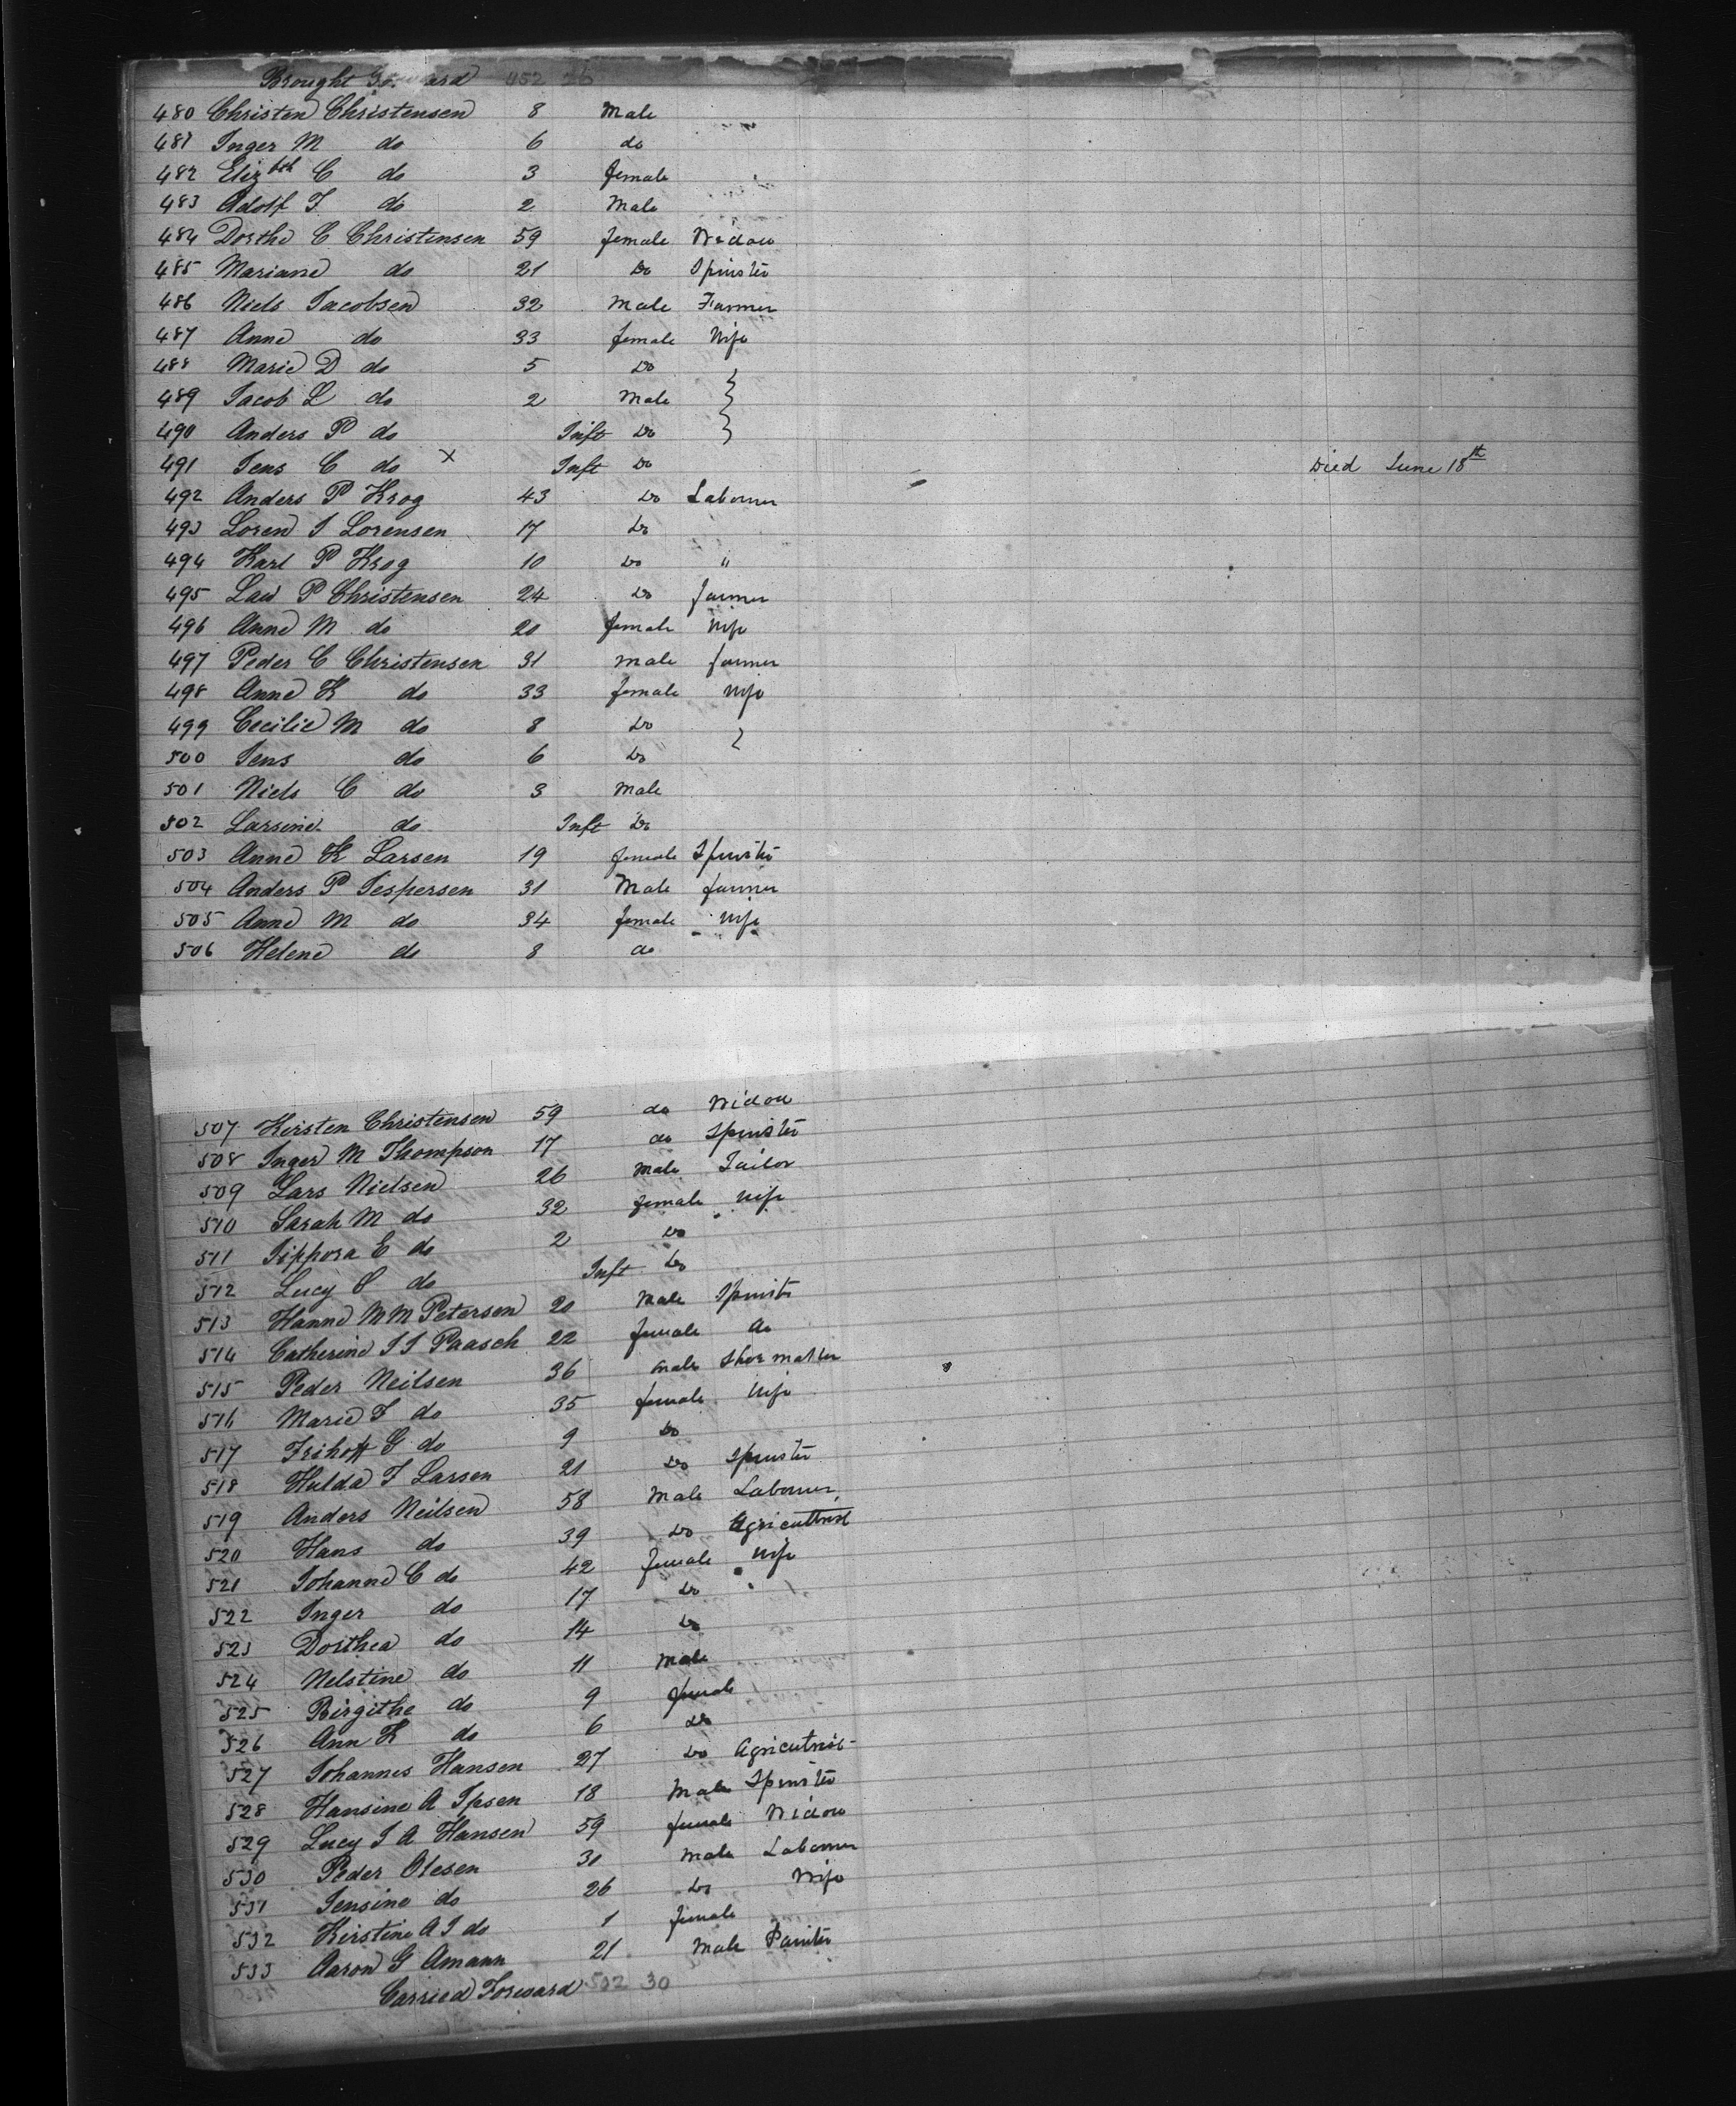 Brought Forward 452 26
480 Christen Christensen 8 Male
481 Inger M do 6 do
482 Elizbth C do 3 female
483 Adolf F do 2 Male
484 Dorthe C Christensen 59 female Widow
485 Mariane do 21 Do Spinster
486 Niels Jacobsen 32 Male Farmer
487 Anne do 33 female Wife
488 Marie D do 5 Do
489 Jacob L do 2 Male
490 Anders P do Inft Do
491 Jens C do X Inft Do Died June 18th
492 Anders P Krog 43 Do Labourer
493 Loren J Lorensen 17 Do
494 Karl P Krog 10 Do "
495 Law P Christensen 24 Do farmer
496 Anne M do 20 female Wife
497 Peder C Christensen 31 male farmer
498 Anne K do 33 female Wife
499 Cecilie M do 8 Do
500 Jens do 6 Do
501 Niels C do 3 Male
502 Larsine do Inft Do
503 Anne K Larsen 19 female Spinster
504 Anders P Jespersen 31 Male farmer
505 Anne M do 34 female Wife
506 Helene do 8 do
507 Kirsten Christensen 59 do Widow
508 Inger M Thompson 17 do Spinster
509 Lars Nielsen 26 Male Tailor
510 Sarah M do 32 female Wife
511 Sippora E do 2 Do
512 Lucy C do Inft Do
513 Hanne M M Petersen 20 Male Spinster
514 Catherine J J Paasch 22 female do
515 Peder Neilsen 36 male Shoe maker
516 Marie F do 35 female Wife
517 Frihoff G do 9 Do
518 Hulda F Larsen 21 Do Spinster
519 Anders Neilsen 58 Male Labourer
520 Hans do 39 Do Agricultrist
521 Johanne C do 42 female Wife
522 Inger do 17 Do
523 Dorthea do 14 Do
524 Nelstine do 11 Male
525 Birgithe do 9 female
526 Ann K do 6 Do
527 Johannes Hansen 27 Do Agricutrist
528 Hansine A Ipsen 18 Male Spinster
529 Lucy J A Hansen 59 female Widow
530 Peder Olesen 30 Male Labourer
531 Jensine do 26 Do Wife
532 Kirstine A J do 1 female
533 Aaron G Amann 21 Male Painter
Carried Forward 502 30